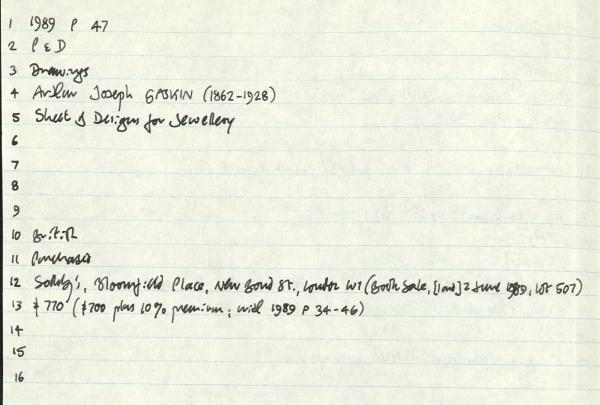 1 1989 P 47
2 P & D
3 Drawings
4 Arthur Joseph GASKIN (1862-1928)
5 Sheet of Designs for Jewellery
6
7
8
9
10 British
11 Purchased
12 Sotheby's, Bloomfield Place, New Bond St., London W1 (Book Sale, 2 June 1989, lot 507)
13 £770 (£700 plus 10% premium; with 1989 P 34-46)
14
15
16